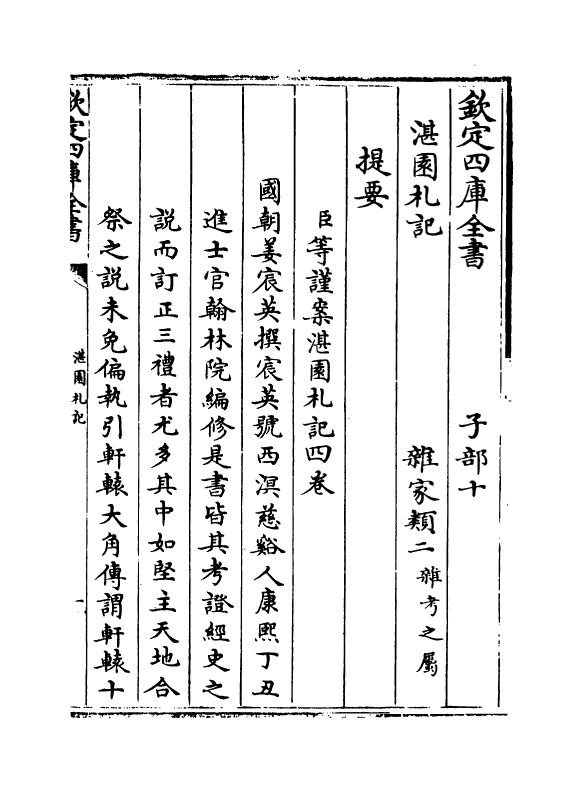 欽定四庫全書　　　　子部十
湛園札記　　　　　　雜家類二雜考之屬
提要
臣等謹案湛園札記四卷
國朝姜宸英撰宸英號西溟慈谿人康熙丁丑
進士官翰林院編修是書皆其考證經史之
說而訂正三禮者尤多其中如堅主天地合
祭之說未免偏執引軒轅大角傳謂軒轅十
欽定四庫全書
湛園札記
一